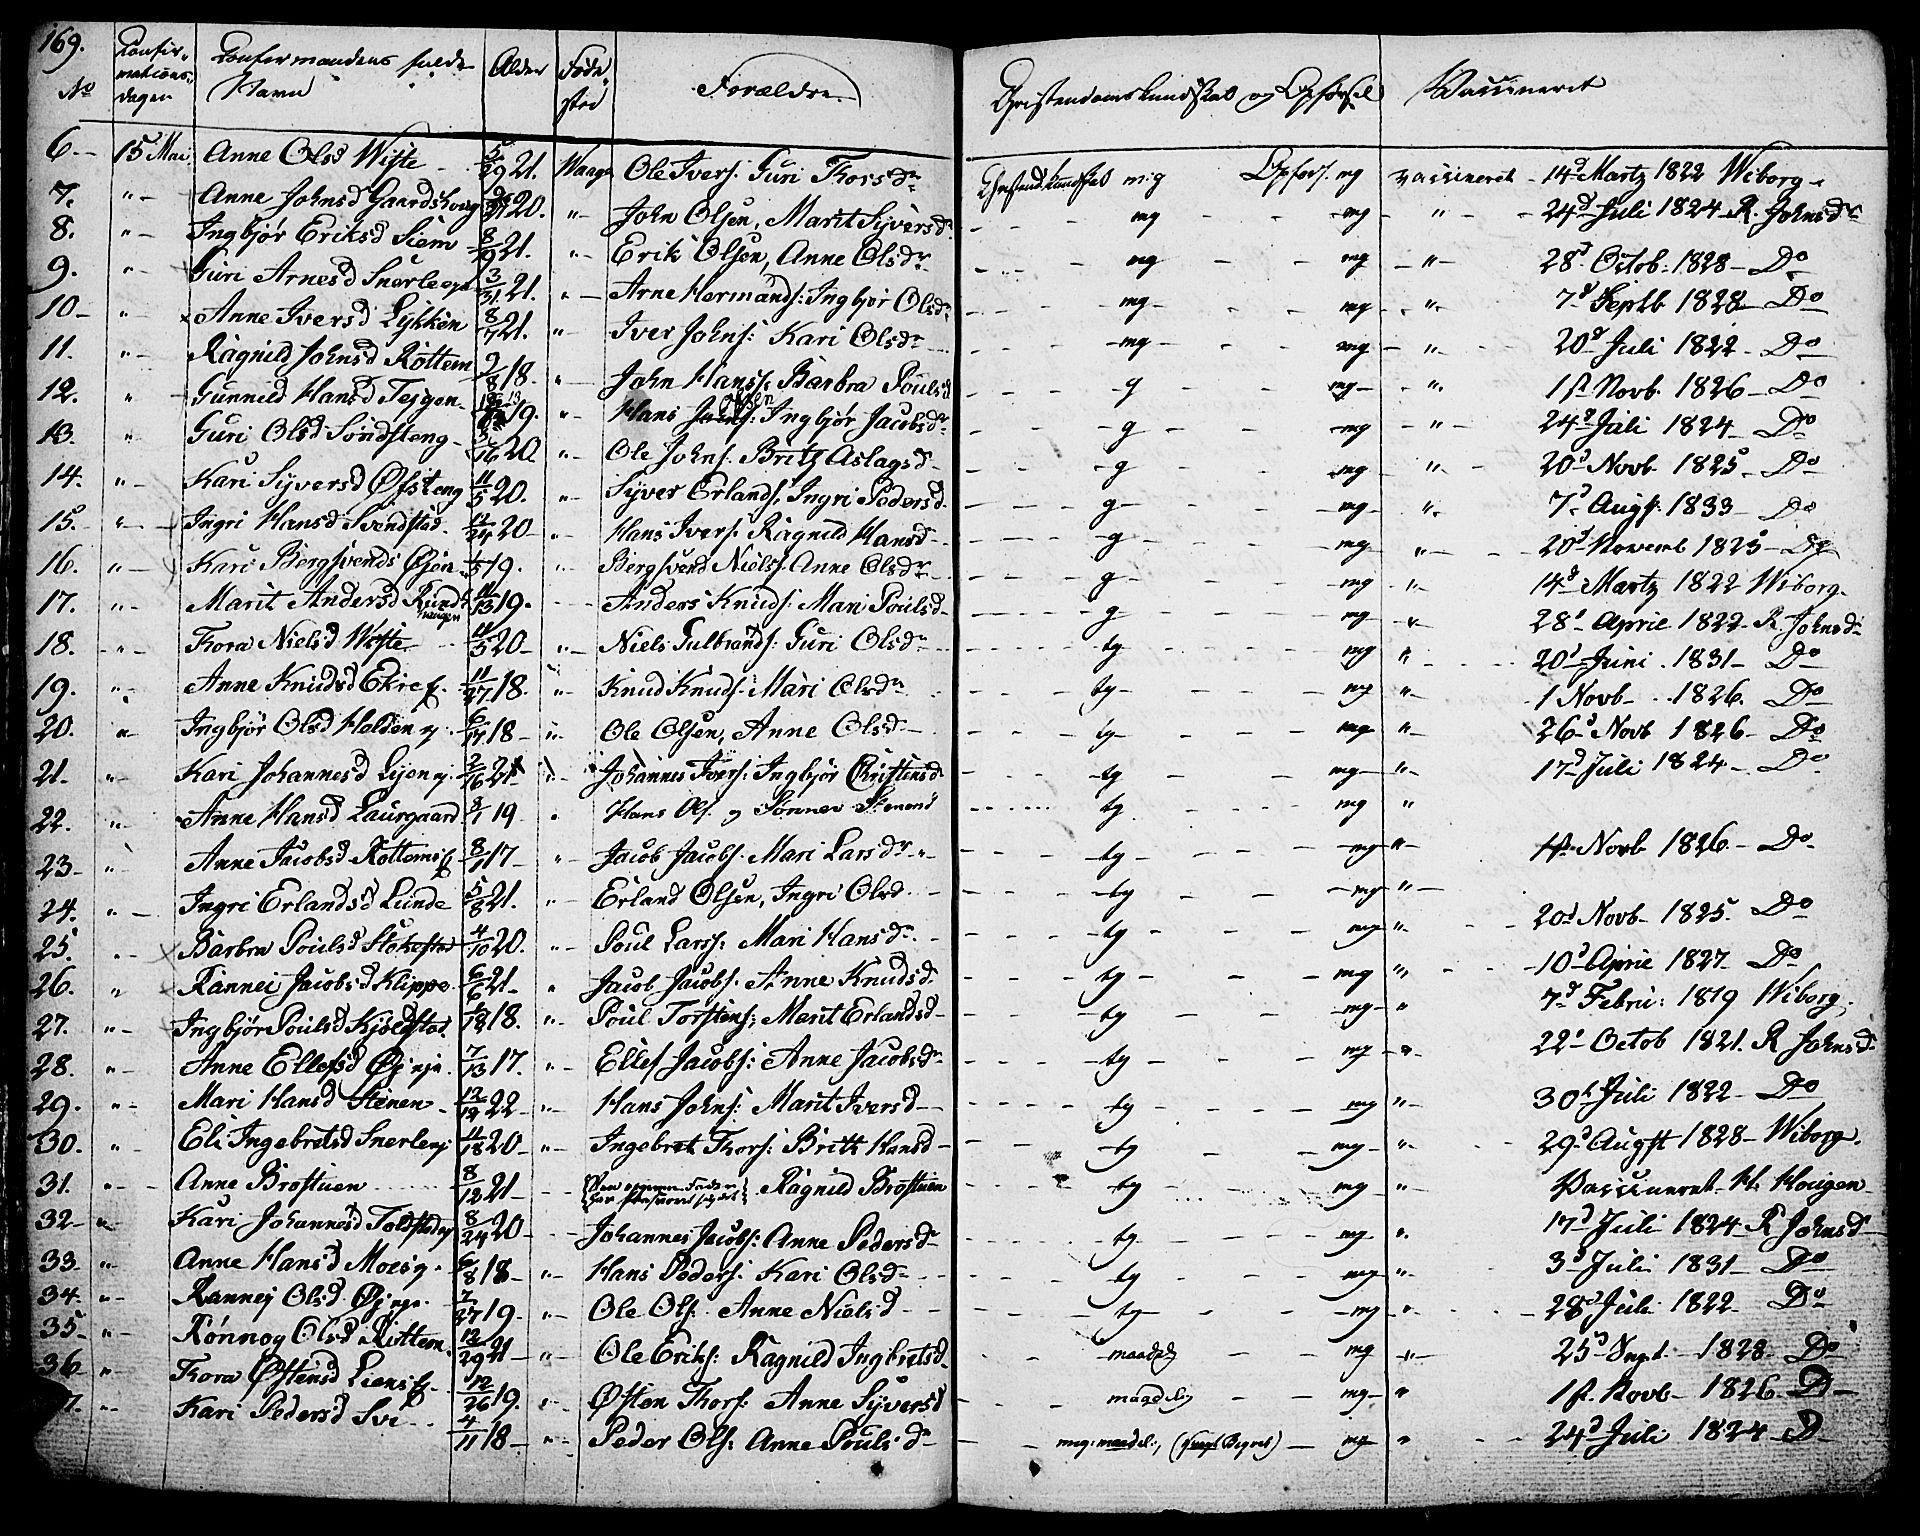 169.
No
Confir-
mations-
dagen
Confirmandens fulde
Navn
Alder
Føde-
sted
Forældre
Christendomskundskab og Opførsel
Vaccineret
6. 15 Mai Anne Olsd Wiste 5/29 21. Waage Ole Ivers: Guri Thorsdr Christend. kundskab mg Opførs. mg vaccineret 14d Martz 1822 Wiborg
7. " Anne Johnsd Gaardshoug 20. " John Olsen, Marit Syversdr mg mg " 24d Juli 1824 R. Johnsdr
8. " Ingbjør Eriksd Siem 8/9 21. " Erik Olsen, Anne Olsdr mg mg " 28d Octob: 1828 Do
9. " Guri Arnesd Snerle 3/31 21. " Arne Hermands: Ingbjør Olsdr mg mg " 7d Septb 1828 Do
10 " Anne Iversd Løkken 8/7 21. " Iver Johns: Kari Olsdr mg mg " 20d Juli 1822 Do
11. " Ragnild Johnsd Rottem 9/8 18. " John Hanss: Barbra Poulsd g mg " 1st Novb. 1826 Do
12. " Gunnild Hansd Tejgen 19. " Hans Olsen Ingbjør Jacobsdr g mg " 24d Juli 1824 Do
13. " Guri Olsd Sondsteng 3/16 20. " Ole Johns: Britz Aslagsd g mg " 20d Novb. 1825. Do
14. " Kari Syversd Øfsteng 11/5 20. " Syver Erlands. Ingri Pedersd. g mg " 7d Augs. 1833 Do
15. " Ingri Hansd Svendstad 20 " Hans Ivers. Ragnild Hansd g mg " 20d Novemb 1825 Do
16. " Kari Bergsvends Øjen 19. " Bergsvend Niels. Anne Olsdr g mg " 14d Martz 1822 Wiborg.
17. " Marit Andersd Rundhaugen 11/13 19. Anders Knuds: Mari Poulsd g mg " 28d April 1822 R Johnsdr
18. " Thora Nielsd Wiste 11/5 20 " Niels Gulbrands: Guri Olsdr tg mg " 20d Juni 1831 Do
19. " Anne Knudsd Ekre 11/27 18. " Knud Knuds: Mari Olsdr tg mg " 1 Novb 1826. Do
20. " Ingbjør Olsd Holden 6/14 18 " Ole Olsen, Anne Olsdr tg mg " 26d Novb 1826 Do
21. " Kari Johannesd Lien 2/16 21 " Johannes Ivers: Ingbjør Christensd tg mg " 17d Juli 1824 Do
22. " Anne Hansd Laurgaard 19 " Hans Ols. og Rønnev tg mg "
23 " Anne Jacobsd Rottem 17 " Jacob Jacobs: Mari Larsdr tg mg " 1st Novb 1826. Do
24. " Ingri Erlandsd Lunde 5/8 21. " Erland Olsen, Ingri Olsd tg mg " 20d Novb 1825. Do
25. " Barbra Poulsd 4/10 20. " Poul Larss: Mari Hansdr tg mg " 10d April 1827 Do
26. " Rannei Jacobsd Klippe 6/6 21 " Jacob Jacobs: Anne Knudsd tg mg " 7d Febru: 1819 Wiborg.
27. " Ingbjør Poulsd Kjoldstad 18. " Poul Torstens: Marit Erlandsd tg mg " 22d Octob 1821. R Johnsdr
28. " Anne Ellefsd Øjnje 7/13 17. " Ellef Jacobs: Anne Jacobsdr tg mg " 30d Juli 1822 Do
29. " Mari Hansd Stenen 12/19 22 " Hans Johns: Marit Iversd tg mg " 29d Augst 1828 Wiborg.
30. " Eli Ingebretsd Snerle 11/18 20 " Ingebret Thors: Britt Hansd tg mg " Vaccineret H. Hougen
31. " Anne Brostuen 8/12 21 Ragnild Brostuen tg mg "
32 " Kari Johannesd Toldstad 8/24 20 Johannes Jacobs: Anne Pedersdr tg mg " 17d Juli 1824 R Johnsdr
33. " Anne Hansd Moe 6/8 18 " Hans Peders: Kari Olsdr tg mg " 3d Juli 1831 Do
34. " Rannej Olsd Øjnje 7/27 19. " Ole Ols. Anne Nielsd tg mg " 28d Juli 1822 Do
35 " Rønnog Olsd Rottem. 12/29 21 " Ole Eriks: Ragnild Ingbretsd maadel. mg " 25d Sept. 1828. Do
36 " Thora Østensd Lien 12/26 19. " Østen Thors: Anne Syversd maadelig mg " 1st Novb 1826 D
7. " Kari Pedersd Sve 4/11 18 " Peder Ols: Anne Poulsdr meg: maadel., mg " 24d Juli 1824 D